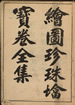 繪圖珍珠塔
寶卷全集